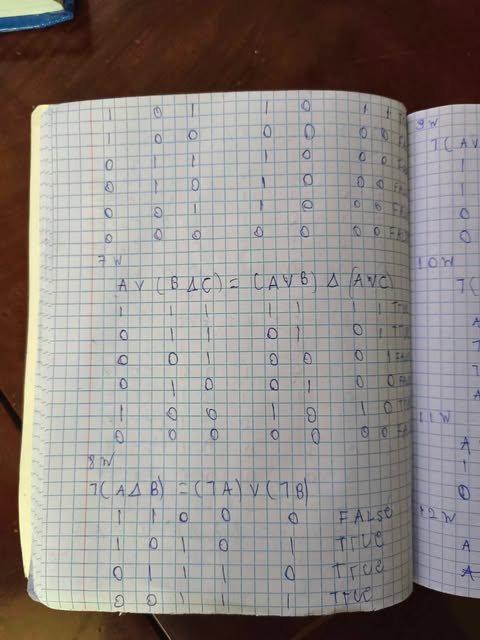 1 0 1 1 0 1 1
1 0 0 0 0 0 0
0 1 1 1 0 0 0
0 1 0 1 0 0 0
0 0 1 1 0 0 0 FAL
0 0 0 0 0 0 0 FALS
7W
A V (B Δ C) = (A V B) Δ (A V C)
1 1 1 1 1 1 1 TTUC
0 1 1 0 1 0 1 TTUC
0 0 1 0 0 0 1 FALS
0 1 0 0 1 0 0 FALS
1 0 0 1 0 1 0 TTUC
0 0 0 0 0 0 0 FAL
8W
7(A Δ B) = (7A) V (7B)
1 1 0 0 0 FALSE
1 0 1 0 1 TTUC
0 1 1 1 0 TTUC
0 0 1 1 1 TTUC
9W
7(AV
1
1
0
0
10W
7(
A
T
T
A
11W
A
1
0
12W
A
A